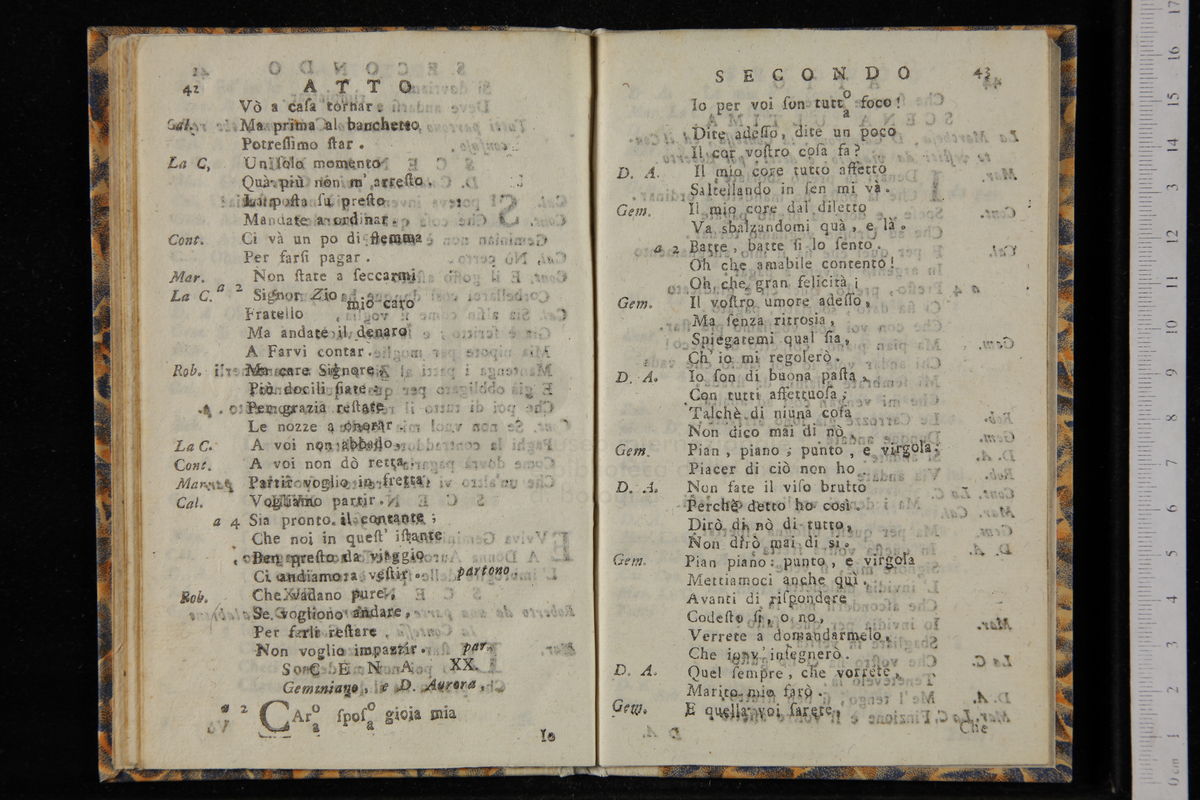 42
ATTO
Vò a caſa tornar.
Gal. Ma prima al banchetto
Potreſſimo ſtar.
La C, Un ſolo momento
Quà più non m' arreſto.
La poſta ſu preſto
Mandate a ordinar.
Cont. Ci và un po di flemma
Per farſi pagar.
Mar. Non ſtate a ſeccarmi
La C. a 2 Signor Zio mio caro
Fratello
Ma andate il denaro
A Farvi contar.
Rob. Ma care Signore,
Più docili ſiate:
Per grazia reſtate
Le nozze a onorar.
La C. A voi non abbado,
Cont. A voi non dò retta
Mar. Partir voglio in fretta
Cal. Vogliamo partir.
a 4 Sia pronto il contante;
Che noi in queſt' iſtante
Ben preſto da viaggio
Ci andiamo a veſtir. partono
Rob. Che vadano pure,
Se vogliono andare,
Per farli reſtare
Non voglio impazzir. par.
SCENA XX.
Geminiano, e D. Aurora.
a 2 CAr o a ſpoſ o a gioia mia
Io
SECONDO
43
Io per voi ſon tutt o a foco!
Dite adeſſo, dite un poco
Il cor voſtro coſa fa?
D. A. Il mio core tutto affetto
Saltellando in ſen mi và.
Gem. Il mio core dal diletto
Va sbalzandomi quà, e là.
a 2 Batte, batte ſi lo ſento.
Oh che amabile contento!
Oh che gran felicità!
Gem. Il voſtro umore adeſſo,
Ma ſenza ritrosia,
Spiegatemi qual ſia,
Ch' io mi regolerò.
D. A. Io ſon di buona paſta,
Con tutti affettuoſa;
Talchè di niuna coſa
Non dico mai di nò
Gem. Pian, piano; punto, e virgola;
Piacer di ciò non ho
D. A. Non fate il viſo brutto
Perchè detto ho così
Dirò di nò di tutto,
Non dirò mai di si.
Gem. Pian piano: punto, e virgola
Mettiamoci anche quì.
Avanti di riſpondere
Codeſto ſi, o no,
Verrete a domandarmelo,
Che io v' inſegnerò.
D. A. Quel ſempre, che vorrete,
Marito mio farò.
Gem. E quella voi ſarete,
Che